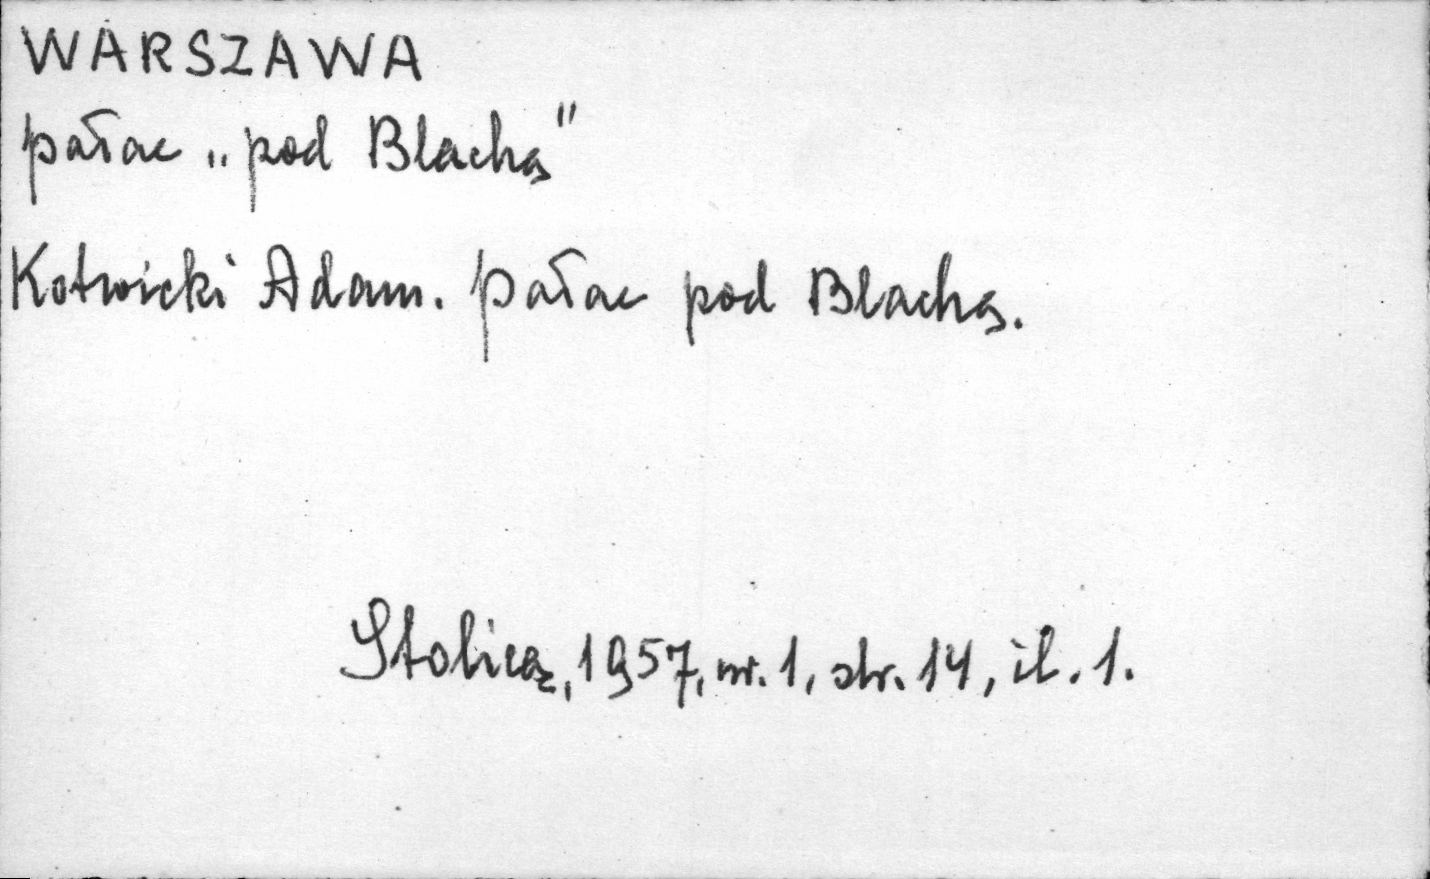 WARSZAWA
pałac „pod Blachą”
Kotwicki Adam. Pałac pod Blachą.
Stolica, 1957, nr. 1, str. 14, il. 1.